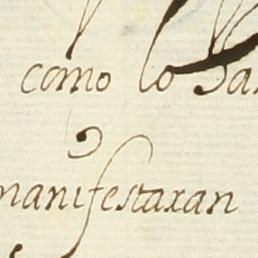 como lo
manifestaran